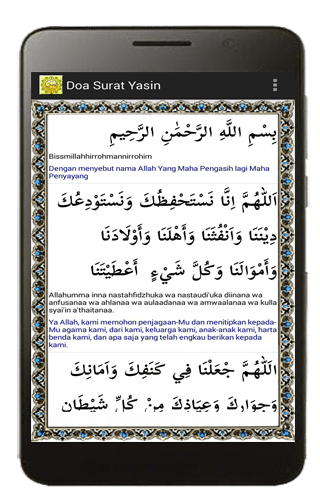 Doa Surat Yasin
بِسْمِ اللَّهِ الرَّحْمَٰنِ الرَّحِيمِ
Bissmillahhirrohmannirrohim
Dengan menyebut nama Allah Yang Maha Pengasih lagi Maha
Penyayang
اَللّٰهُمَّ اِنَّا نَسْتَحْفِظُكَ وَنَسْتَوْدِعُكَ
دِيْنَنَا وَاَنْفُسَنَا وَاَهْلَنَا وَاَوْلَادَنَا
وَاَمْوَالَنَا وَكُلَّ شَيْءٍ أَعْطَيْتَنَا
Allahumma inna nastahfidzhuka wa nastaudi'uka diinana wa
anfusanaa wa ahlanaa wa aulaadanaa wa amwaalanaa wa kulla
syai'in a'thaitanaa.
Ya Allah, kami memohon penjagaan-Mu dan menitipkan kepada-
Mu agama kami, dari kami, keluarga kami, anak-anak kami, harta
benda kami, dan apa saja yang telah engkau berikan kepada
kami.
اَللّٰهُمَّ اجْعَلْنَا فِي كَنَفِكَ وَاَمَانِكَ
وَجِوَارِكَ وَعِيَاذِكَ مِنْ كُلِّ شَيْطَانٍ